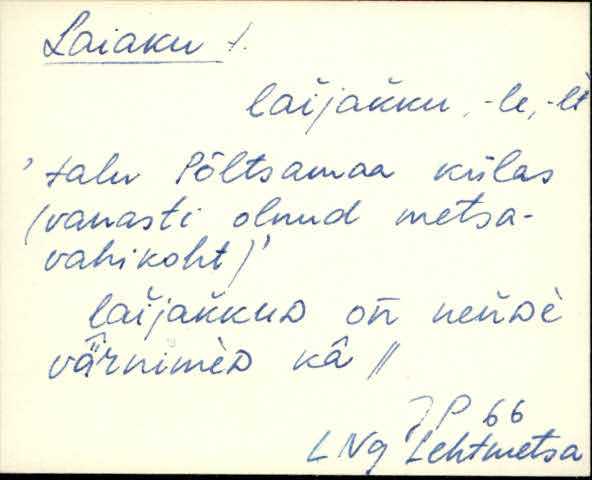 Laiaku t.
laijakku, -le, -lt
'talu Põltsamaa külas
(vanasti olnud metsa-
vahikoht)'
laijakkuD on neńDè
värnimèD kâ //
JP 66
LNg Lehtmetsa